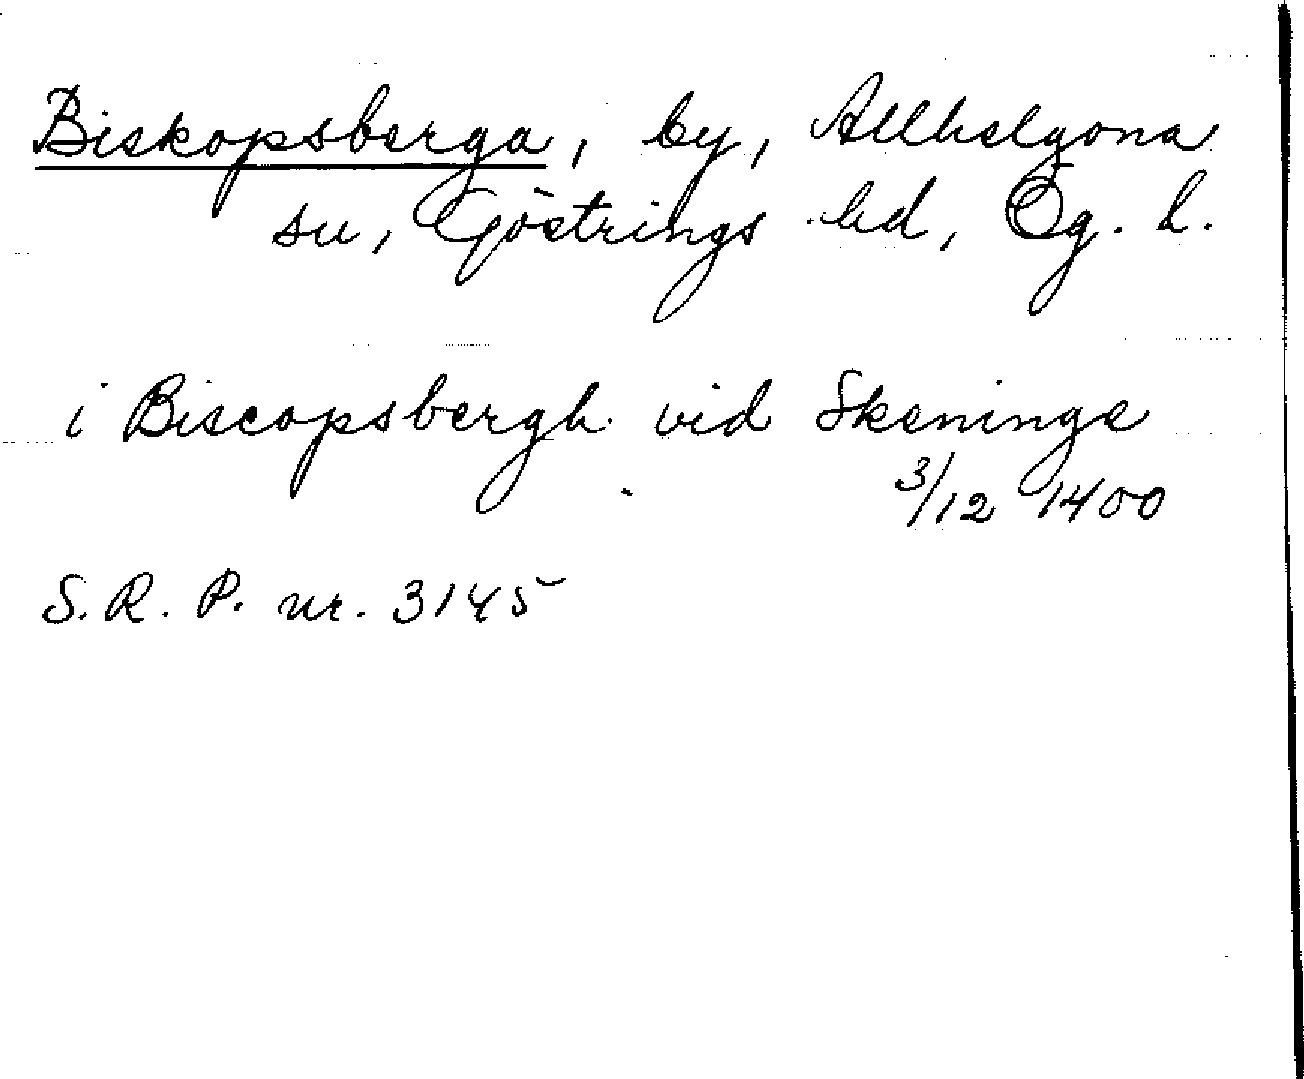 Biskopsberga, by, Allhelgona
sn, Göstrings hd, Ög. l.
i Biscopsbergh vid Skeninge
3/12 1400
S. R. P. nr. 3145